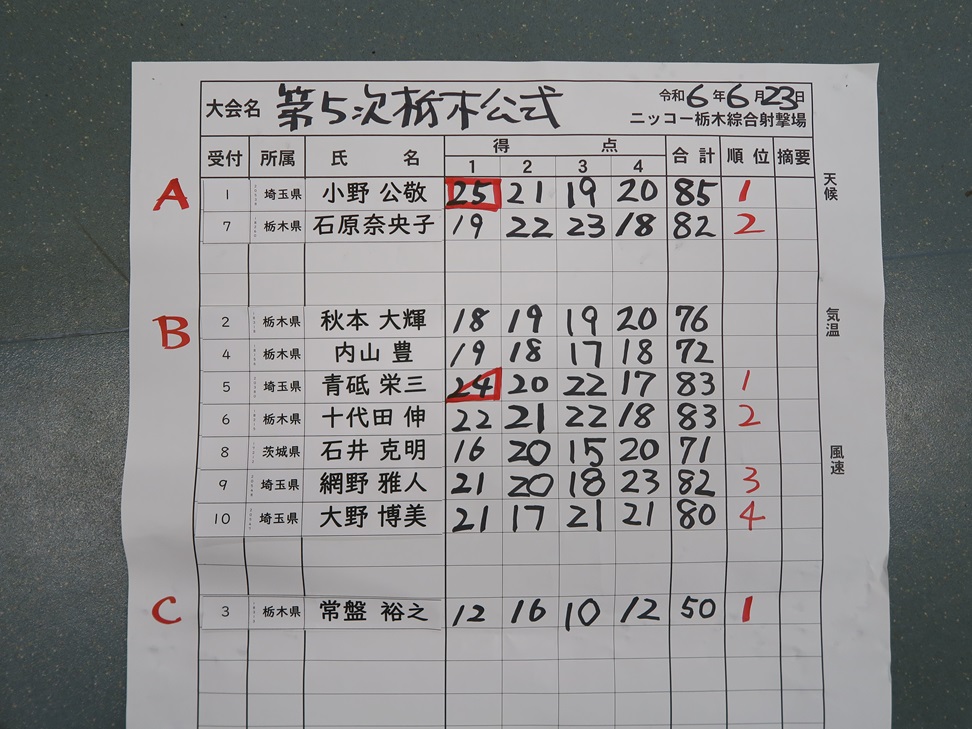 大会名 第5次栃木公式 令和6年6月23日
ニッコー栃木綜合射撃場
受付 所属 氏名 得点 合計 順位 摘要
1 2 3 4
A 1 埼玉県 小野 公敬 25 21 19 20 85 1
7 栃木県 石原奈央子 19 22 23 18 82 2
天候
B 2 栃木県 秋本 大輝 18 19 19 20 76
気温
4 栃木県 内山 豊 19 18 17 18 72
5 埼玉県 青砥 栄三 24 20 22 17 83 1
6 栃木県 十代田 伸 22 21 22 18 83 2
8 茨城県 石井 克明 16 20 15 20 71
風速
9 埼玉県 網野 雅人 21 20 18 23 82 3
10 埼玉県 大野 博美 21 17 21 21 80 4
C 3 栃木県 常盤 裕之 12 16 10 12 50 1